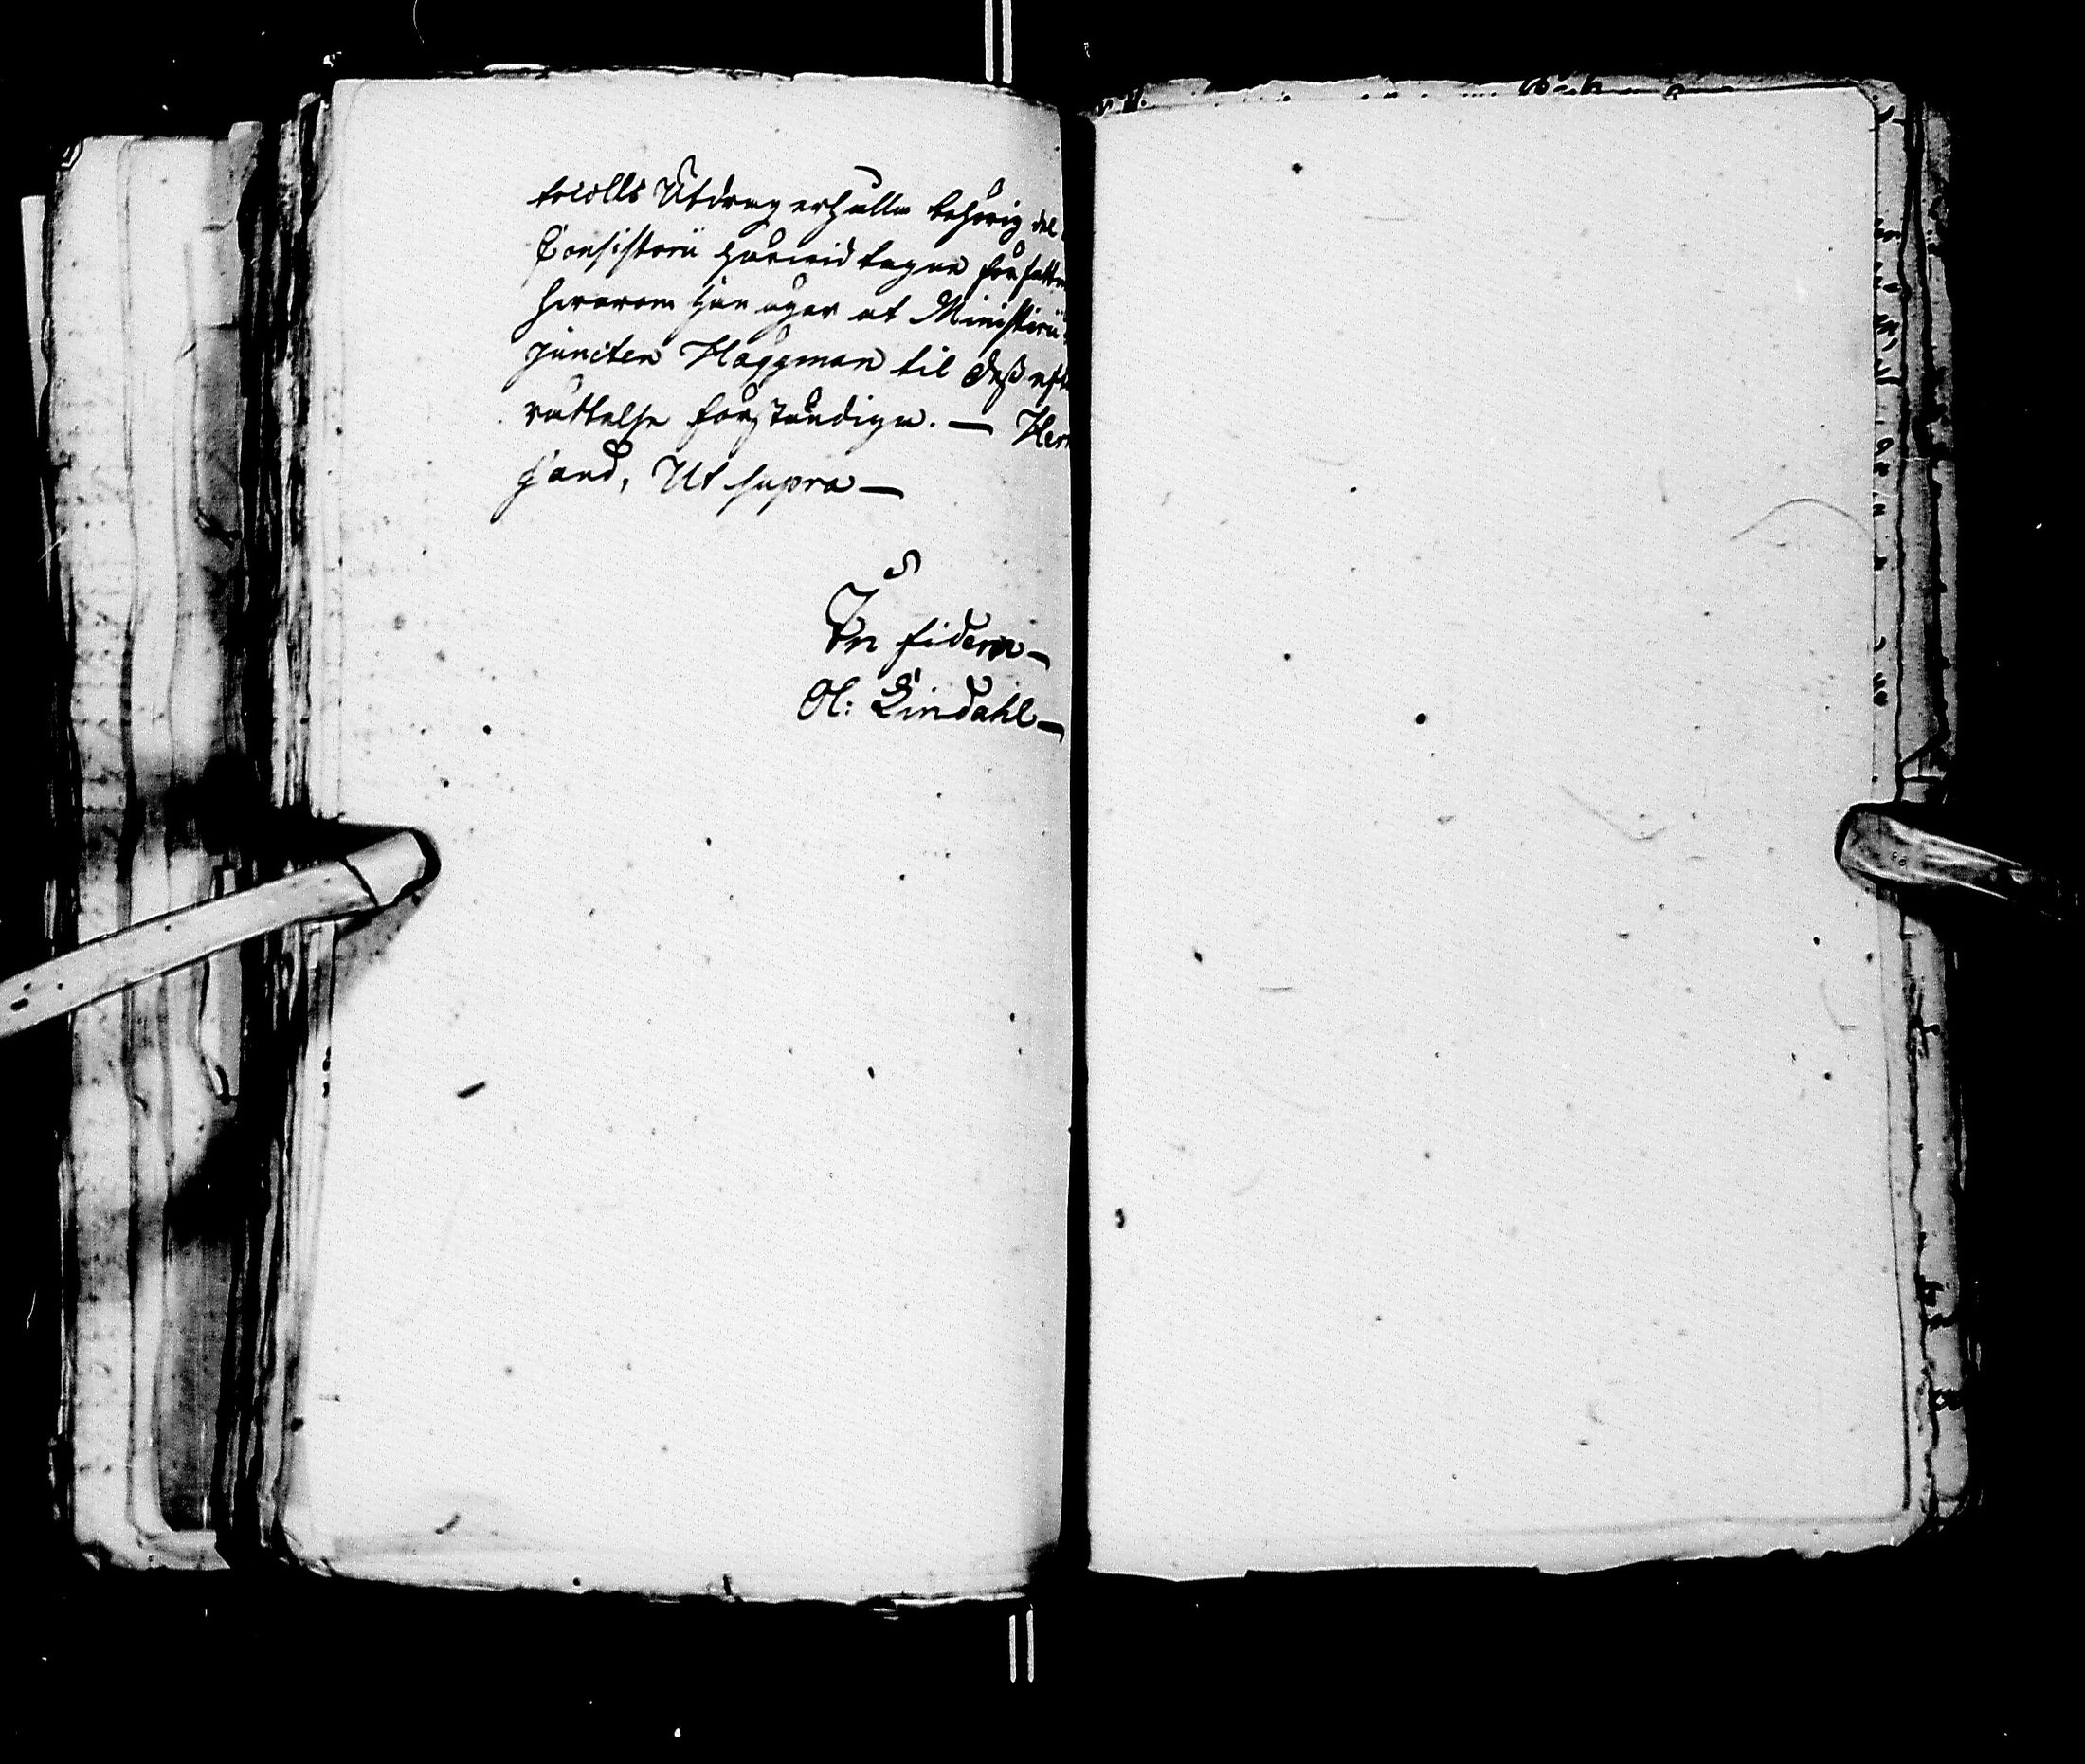 tocolls Utdrag erhålla behörig del
Consistorii härwid tagne författn
hwarom Han äger at Ministerii
juncten Häggman til deß eft
rättelse förständiga. — Her
sand, Ut supra —
In fidem —
Ol: Lindahl —